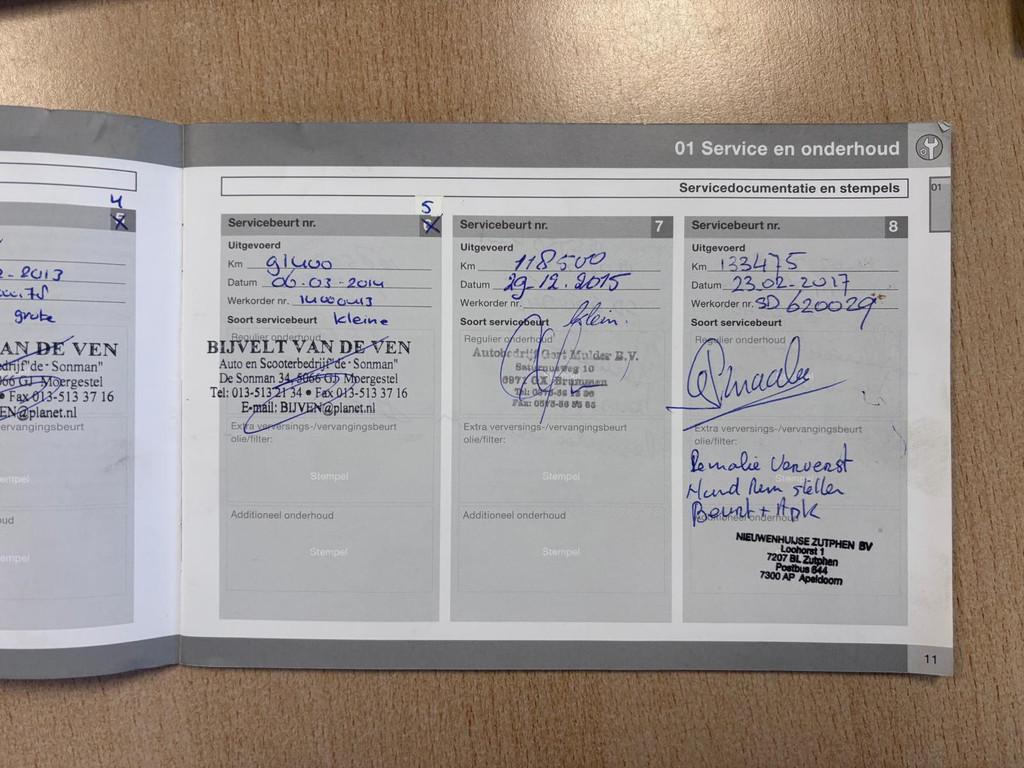 01 Service en onderhoud
01
Servicedocumentatie en stempels
4
2-2013
grote
AN DE VEN
drijf "de Sonman"
066 GJ Moergestel
• Fax 013-513 37 16
EN@planet.nl
vervangingsbeurt
empel
oud
empel
5
Servicebeurt nr.
Uitgevoerd
Km 91400
Datum 06-03-2014
Werkorder nr. 14000413
Soort servicebeurt kleine
Regulier onderhoud
BIJVELT VAN DE VEN
Auto en Scooterbedrijf "de Sonman"
De Sonman 34, 5066 GJ Moergestel
Tel: 013-513 21 34 • Fax 013-513 37 16
E-mail: BIJVEN@planet.nl
Extra verversings-/vervangingsbeurt
olie/filter:
Stempel
Additioneel onderhoud
Stempel
Servicebeurt nr. 7
Uitgevoerd
Km 118500
Datum 29.12.2015
Werkorder nr.
Soort servicebeurt klein.
Regulier onderhoud
Autobedrijf Gort Mulder B.V.
Saturnusweg 10
6971 GX Brummen
Extra verversings-/vervangingsbeurt
olie/filter:
Stempel
Additioneel onderhoud
Stempel
Servicebeurt nr. 8
Uitgevoerd
Km 133475
Datum 23-02-2017
Werkorder nr. SD 620029
Soort servicebeurt
Regulier onderhoud
Extra verversings-/vervangingsbeurt
olie/filter:
Remolie Ververst
Hand Rem stellen
Beurt + Apk
Additioneel onderhoud
NIEUWENHUIJSE ZUTPHEN BV
Loohorst 1
7207 BL Zutphen
Postbus 844
7300 AP Apeldoorn
11